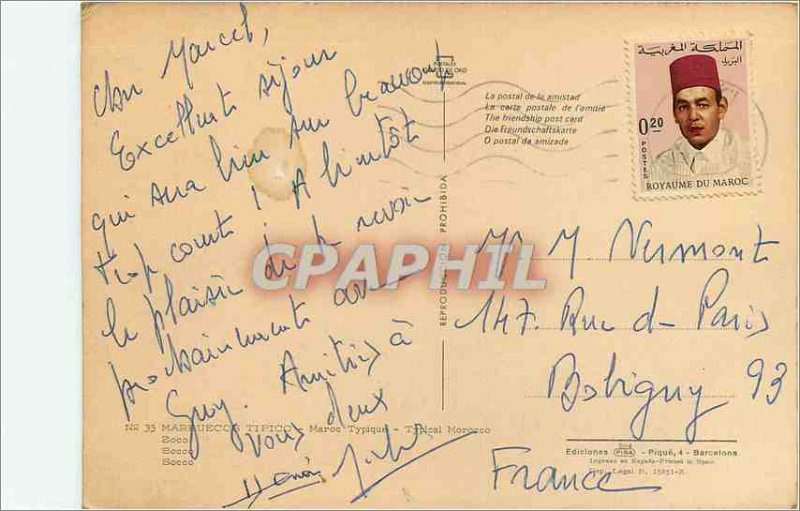 Cher Marcel,
Excellent séjour
qui sera bien sur beaucoup
trop court ! A bientôt
le plaisir de te revoir
prochainement avec
Guy. Amitiés à
vous deux
POSTALES
La postal de la amistad
La carte postale de l'amitié
The friendship post card
Die Freundschaftskarte
O postal de amizade
REPRODUCCION PROHIBIDA
المملكة المغربية
البريد
0.20
POSTES
ROYAUME DU MAROC
M. M Vermont
147. Rue de Paris
Bobigny 93
France
CPAPHIL
No 35 MARRUECOS TIPICO - Maroc Typique - Typical Morocco
Zoco
Socco
Socco
Ediciones PISA - Piqué, 4 - Barcelona
Impreso en España-Printed in Spain
Dep. Legal B. 15851-X